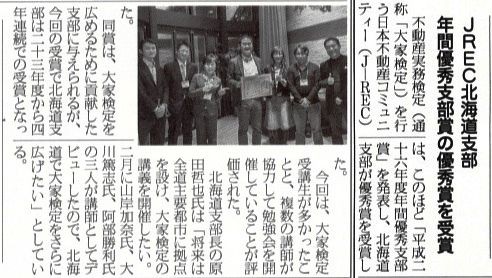 JREC北海道支部
年間優秀支部賞の優秀賞を受賞
不動産実務検定（通
称「大家検定」）を行
う日本不動産コミュニ
ティー（J－REC）
は、このほど「平成二
十六年度年間優秀支部
賞」を発表し、北海道
支部が優秀賞を受賞し
た。
同賞は、大家検定を
広めるために貢献した
支部に与えられるが、
今回の受賞で北海道支
部は二十三年度から四
年連続での受賞となっ
た。
今回は、大家検定
受講生が多かったこ
とと、複数の講師が
協力して勉強会を開
催していることが評
価された。
北海道支部長の原
田哲也氏は「将来は
全道主要都市に拠点
を設け、大家検定の
講義を開催したい。
二月に山岸加奈氏、大
川篤志氏、阿部勝利氏
の三人が講師としてデ
ビューしたので、北海
道で大家検定をさらに
広げたい」としてい
る。